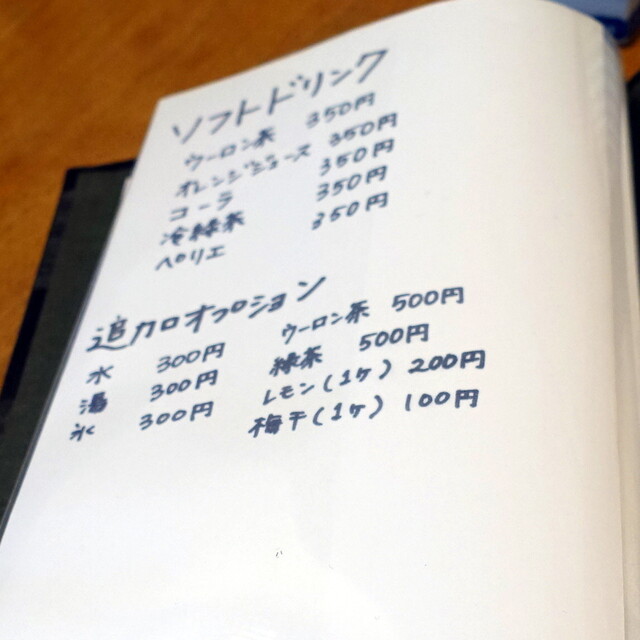 ソフトドリンク
ウーロン茶 350円
オレンジジュース 350円
コーラ 350円
冷緑茶 350円
ペリエ 350円
追加オプション
水 300円 ウーロン茶 500円
湯 300円 緑茶 500円
氷 300円 レモン(1ヶ) 200円
梅干(1ヶ) 100円